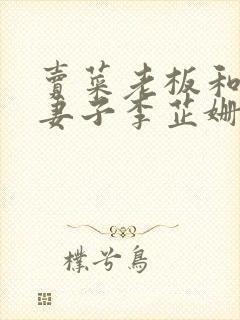 賣菜老板和
妻子李芷姍
樸兮鳥